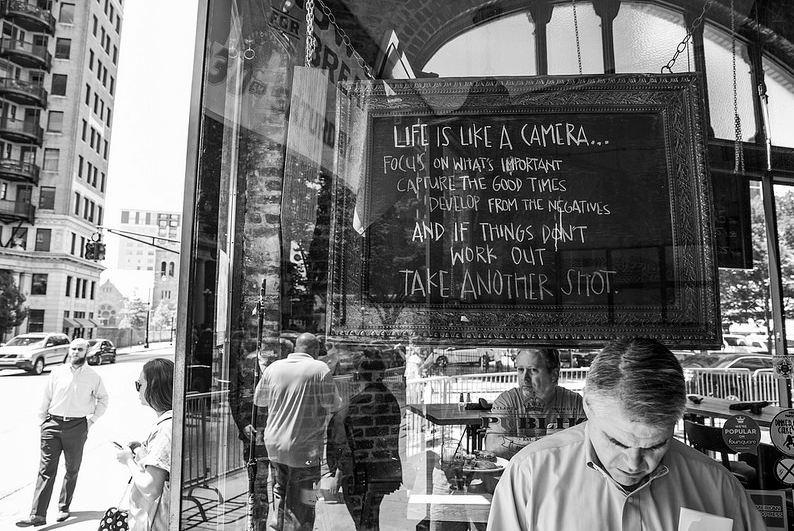 LIFE IS LIKE A CAMERA...
FOCUS ON WHATS IMPORTANT
CAPTURE THE GOOD TIMES
DEVELOP FROM THE NEGATIVES
AND IF THINGS DON'T
WORK OUT
TAKE ANOTHER SHOT.
FOR
PUBLIC
WE'RE
POPULAR
ON
foursquare
AMERICAN
EXPRESS